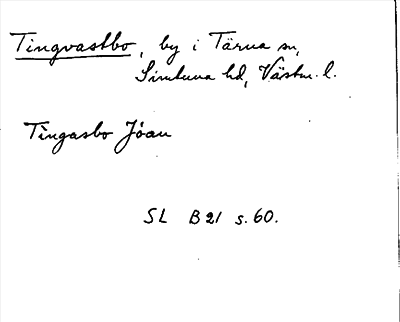 Tingvastbo, by i Tärna sn,
Simtuna hd, Västm. l.
Tingasbo Jöan
SL B 21 s. 60.